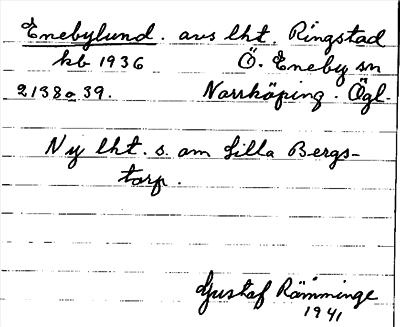 Enebylund. avs lht. Ringstad
kb 1936 Ö. Eneby sn
2138a 39. Norrköping. Ögl.
Ny lht. s. om Lilla Bergs-
torp.
Gustaf Rämminge
1941